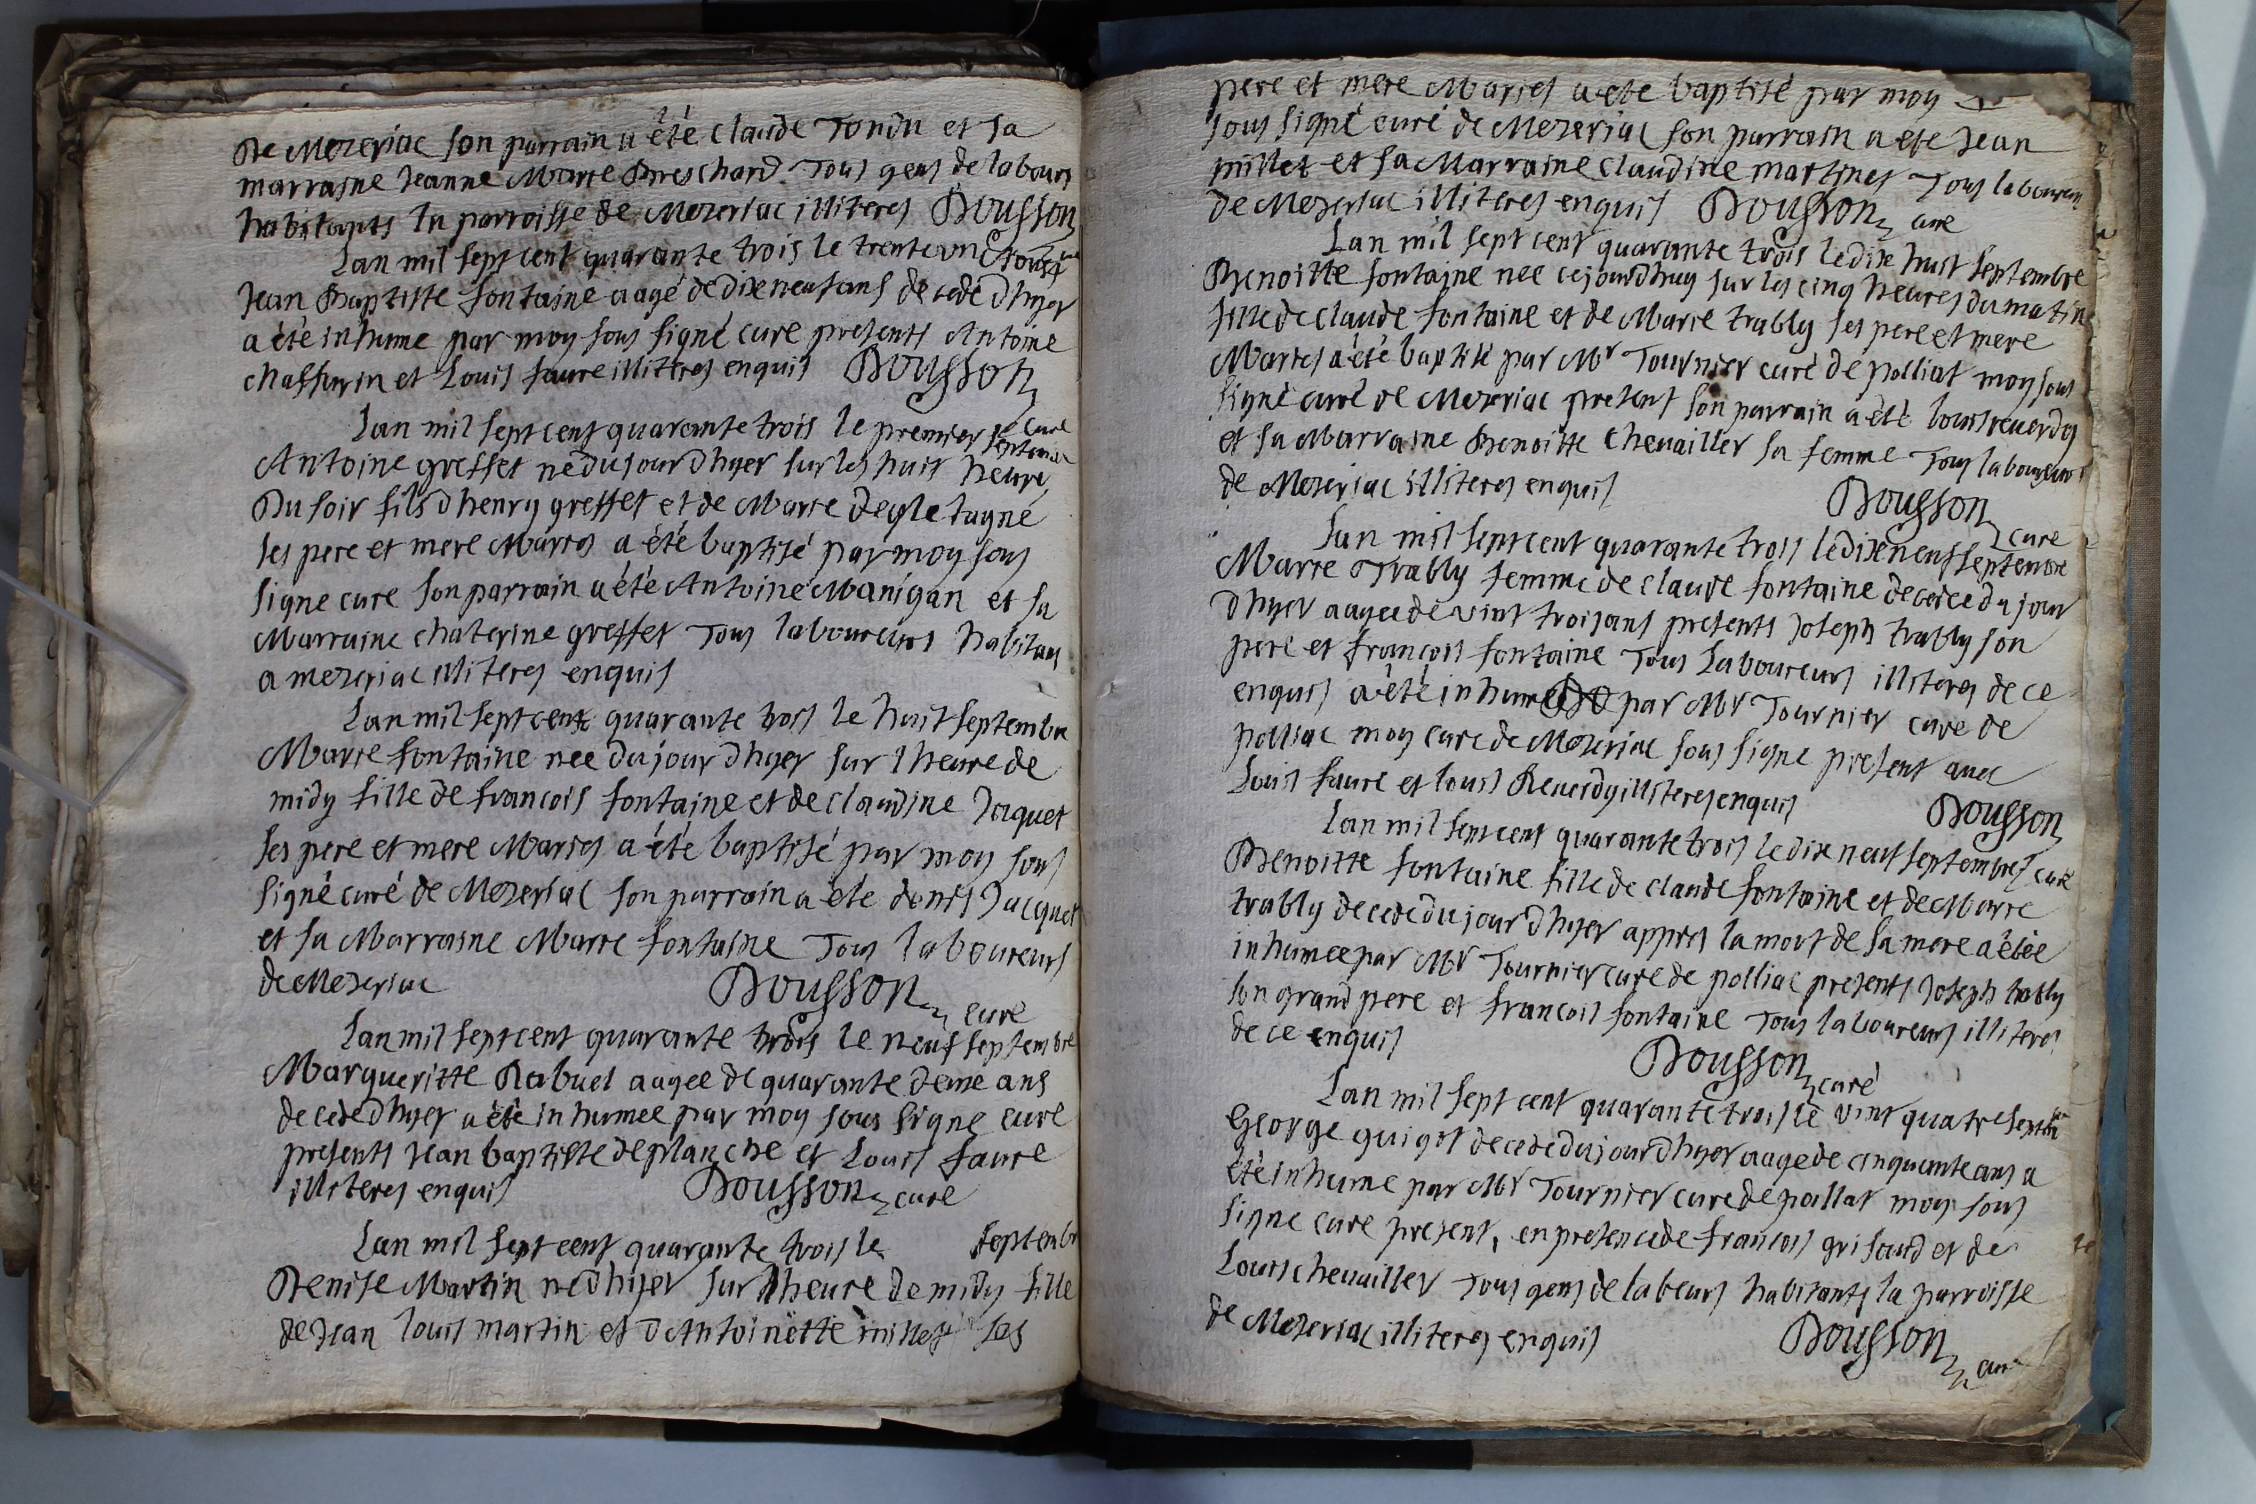 De Mezeriac son parrain a été claude Tondu et sa
marraine Jeanne Marie Breschard Tous gens de labours
habitants la parroisse de Mezeriac illiteres Dousson
Lan mil sept cent quarante trois le trente un
Jean Baptiste fontaine aagé de dixneuf ans decede dhyer
a été inhume par moy sous signé cure presents Antoine
chaffurin et Louis faure illiteres enquis Dousson
cure
Lan mil sept cent quarante trois le premier septembre
Antoine greffet né du jour dhyer sur les huit heure
Du soir fils dhenry greffet et de Marie
ses pere et mere Maries a été baptisé par moy sous
signe cure son parrain a été Antoine Manigan et sa
Marraine chaterine greffet Tous laboureurs habitans
a mezeriac illiteres enquis
Lan mil sept cent quarante trois le huit septembre
Marie fontaine nee du jour dhyer sur lheure de
midy fille de francois fontaine et de claudine Jaquet
ses pere et mere Maries a été baptisé par moy sous
signé curé de Mezeriac son parrain a été denis Jacquet
et sa Marraine Marie fontaine Tous laboureurs
de Mezeriac Dousson cure
Lan mil sept cent quarante trois le neuf septembre
Margueritte Rabuel aagee de quarante deux ans
decede dhyer a été inhumee par moy sous signe cure
presents Jean baptiste deplanche et Louis faure
illiteres enquis Dousson cure
Lan mil sept cent quarante trois le septembre
Denise Martin né dhyer sur lheure de midy fille
de Jean louis martin et dAntoinette millet ses
pere et mere Maries a eté baptisé par moy
sous signé curé de Mezeriac son parrain a ete Jean
millet et sa Marraine claudine martines Tous laboureurs
de Mezeriac illiteres enquis Dousson cure
Lan mil sept cent quarante trois le dix huit septembre
Benoitte fontaine nee cejourdhuy sur les cinq heures du matin
fille de claude fontaine et de Marie trably ses pere et mere
Maries a été baptisé par Mr Tournier curé de polliat moy sous
signé curé de Mezeriac present son parrain a été louis reuerdy
et sa Marraine Benoitte cheuailler sa femme Tous laboureurs
de Mezeriac illiteres enquis Dousson cure
Lan mil sept cent quarante trois le dixneuf septembre
Marie Trably femme de claude fontaine decedee du jour
dhyer aagee de vint trois ans presents Joseph trably son
pere et francois fontaine Tous Laboureurs illiteres de ce
enquis a été inhumée par Mr Tournier cure de
polliac moy cure de Mezeriac sous signe present auec
Louis faure et louis Reuerdy illiteres enquis Dousson
cure
Lan mil sept cent quarante trois le dix neuf septembre
Benoitte fontaine fille de claude fontaine et de Marie
trably decede du jour dhyer appres la mort de sa mere a étée
inhumee par Mr Tournier cure de polliac presents Joseph trably
son grand pere et francois fontaine Tous laboureurs illiteres
de ce enquis Dousson curé
Lan mil sept cent quarante trois le vint quatre septbre
George guigot decede du jour dhyer aage de cinquante ans a
été inhume par Mr Tournier cure de pollat moy sous
signe cure present, en presence de francois grisaud et de
Louis cheuailler Tous gens de labeurs habitants la parroisse
de Mezeriac illiteres enquis Dousson cure